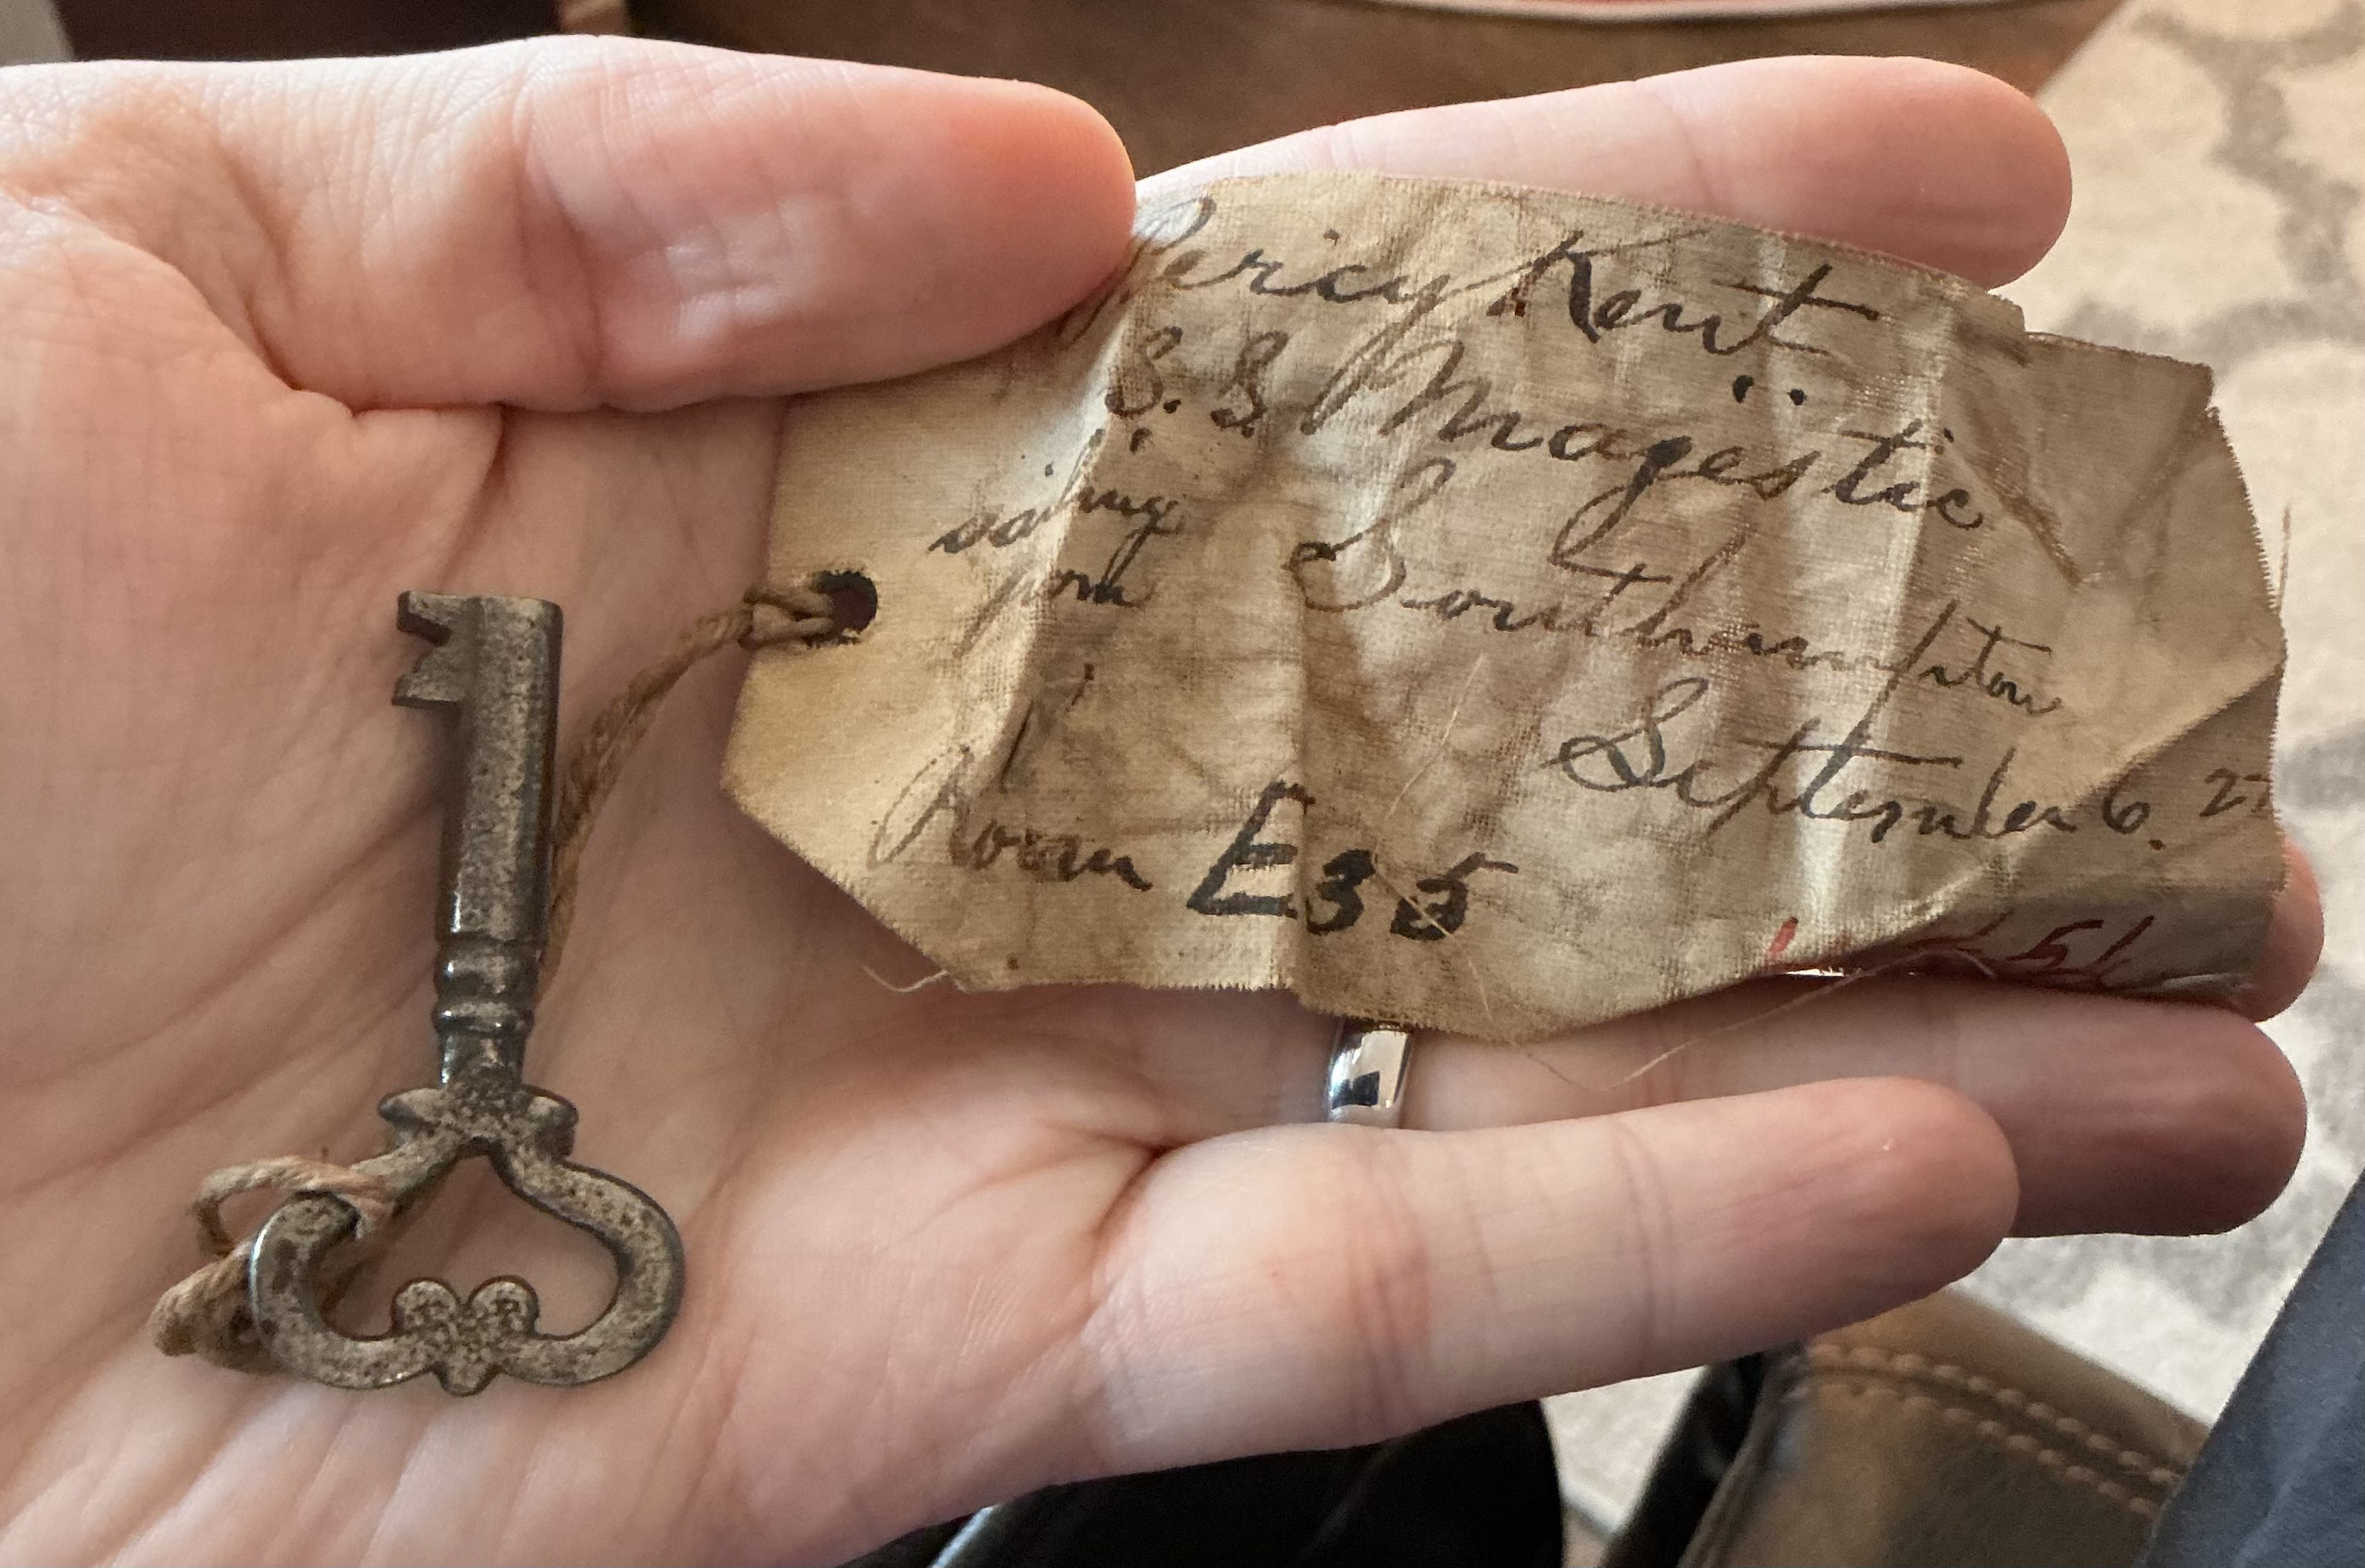 Percy Kent
S.S. Majestic
sailing
from Southampton
September 6. 27
Room E35
51